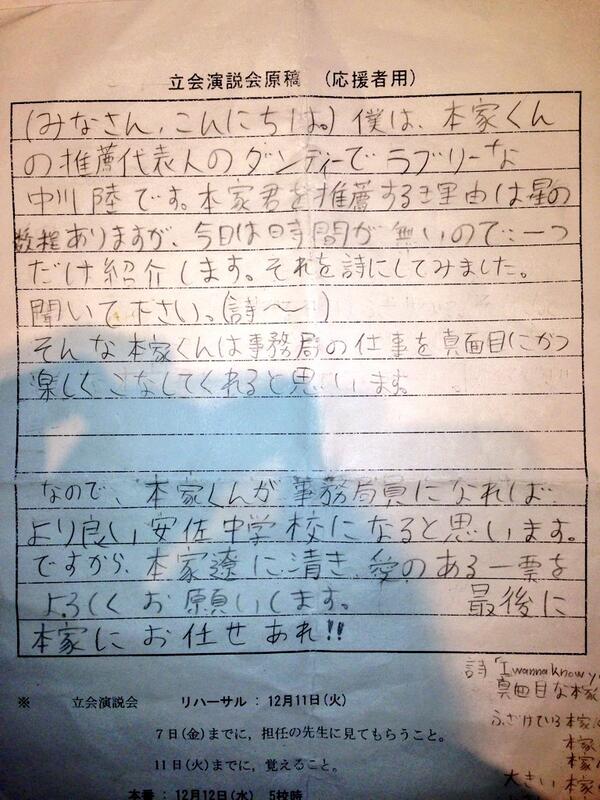 立会演説会原稿 （応援者用）
(みなさん、こんにちは。) 僕は、本家くん
の推薦代表人のダンディーでラブリーな
中川陸です。本家君を推薦するき理由は星の
数程ありますが、今日は時間が無いので…一つ
だけ紹介します。それを詩にしてみました。
聞いて下さいっ(詩〜)
そんな本家くんは事務局の仕事を真面目にかつ
楽しくこなしてくれると思います。
なので、本家くんが事務局員になれば
より良い安佐中学校になると思います。
ですから、本家遼に清き、愛のある一票を
よろしくお願いします。 最後に
本家にお任せあれ!!
詩「I wanna know y
真面目な本家
ふざけている本家
本家
本家
大きい本家
※ 立会演説会 リハーサル：12月11日(火)
7日(金)までに，担任の先生に見てもらうこと。
11日(火)までに，覚えること。
本番：12月12日(水) 5校時